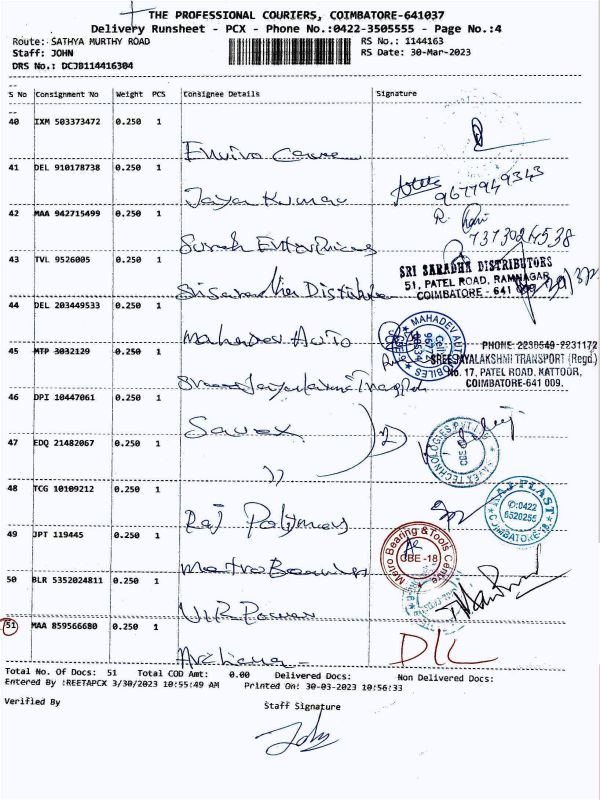 THE PROFESSIONAL COURIERS, COIMBATORE-641037
Delivery Runsheet - PCX - Phone No.:0422-3505555 - Page No.:4
Route: SATHYA MURTHY ROAD RS No.: 1144163
Staff: JOHN RS Date: 30-Mar-2023
DRS No.: DCJB114416304
S No Consignment No Weight PCS Consignee Details Signature
40 IXM 503373472 0.250 1
Enviro Care
41 DEL 910178738 0.250 1
Jaya Kumar
9677949343
42 MAA 942715499 0.250 1
R.
7373024538
Suresh Enterprises
43 TVL 9526005 0.250 1
SRI SARADHA DISTRIBUTORS
51, PATEL ROAD, RAMNAGAR,
COIMBATORE - 641 009.
Srisaradha Distribute
44 DEL 203449533 0.250 1
MAHADEV AUTOMOBILES
Mahadev Auto
PHONE: 2230549-2231172
45 MTP 3032129 0.250 1
SREEJAYALAKSHMI TRANSPORT (Regd.)
No. 17, PATEL ROAD, KATTOOR,
COIMBATORE-641 009.
46 DPI 10447061 0.250 1
Savex
47 EDQ 21482067 0.250 1
SAVEX TECHNOLOGIES PVT LTD
”
48 TCG 10109212 0.250 1
RAJ PLAST
✆:0422
6520255
COIMBATORE-18
Raj Polymers
49 JPT 119445 0.250 1
Metro Bearing & Tools Centre
CBE -18
Metro Bearings
50 BLR 5352024811 0.250 1
VLR Power
51 MAA 859566680 0.250 1
Archana
DLC
Total No. Of Docs: 51 Total COD Amt: 0.00 Delivered Docs: Non Delivered Docs:
Entered By :REETAPCX 3/30/2023 10:55:49 AM Printed On: 30-03-2023 10:56:33
Verified By Staff Signature
John